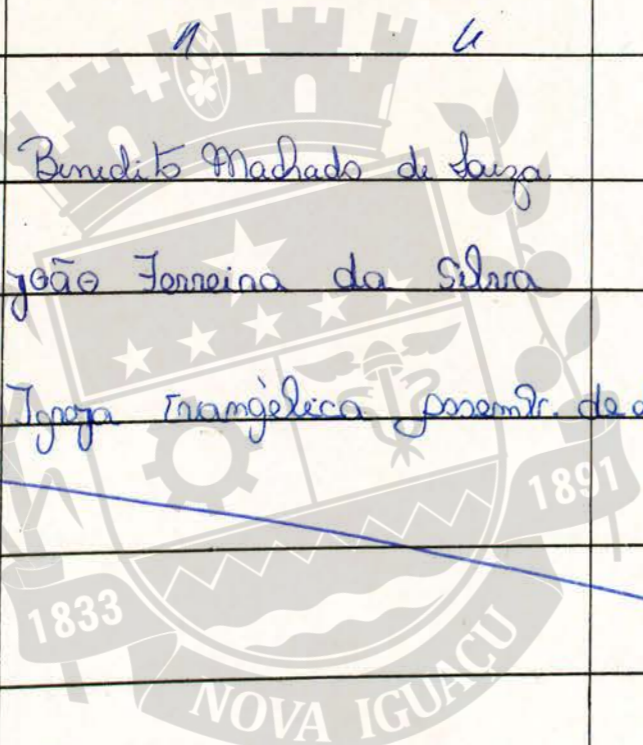 " "
Benedito Machado de Souza
João Ferreira da Silva
Igreja Evangélica Assemb. de
1891
1833
NOVA IGUAÇU